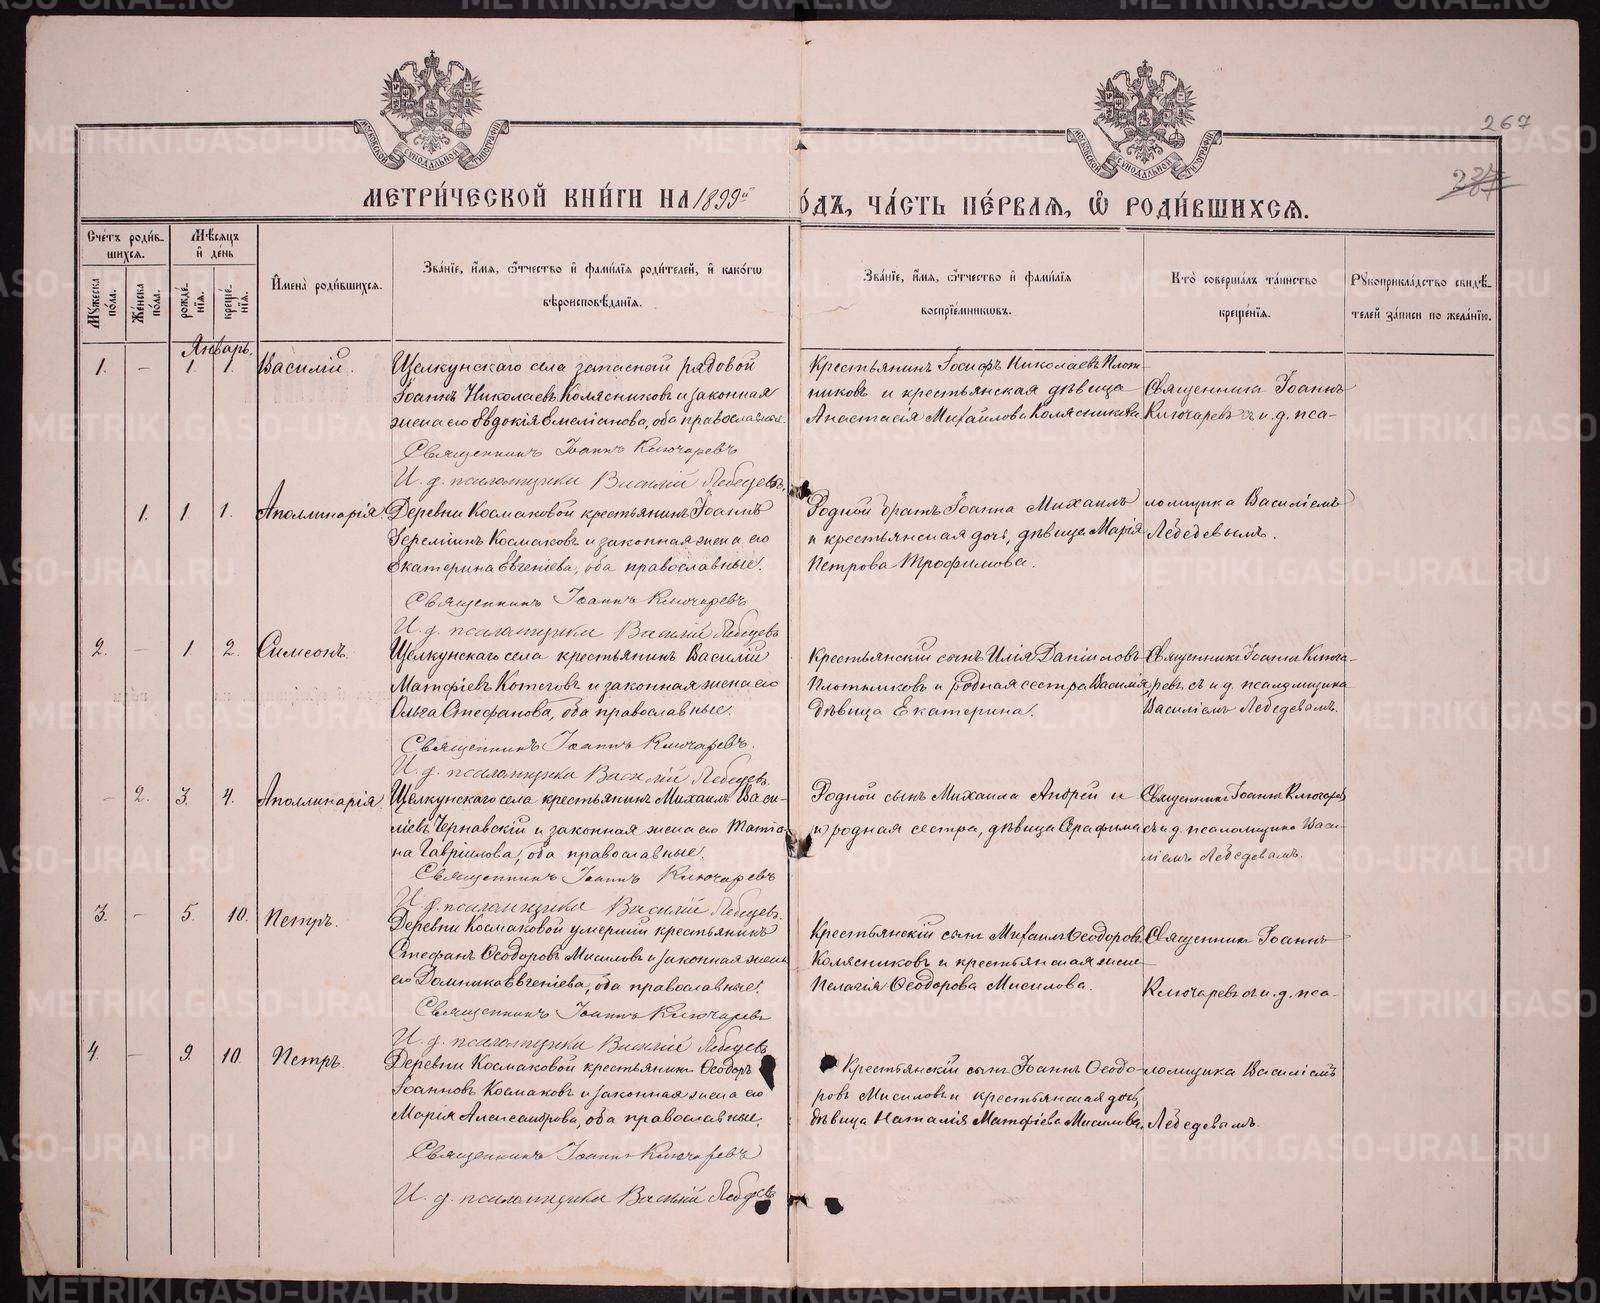 267
МЕТРИ́ЧЕСКОЙ КНИ́ГИ НА 1899й
ОДЪ, ЧА́СТЬ ПЕ́РВАЯ, Ѡ РОДИ́ВШИХСЯ.
Счетъ роди́в-
шихся.
Мѣсяцъ
и де́нь
Му́жеска по́ла.
Же́нска по́ла.
рожде́нїя.
креще́нїя.
Имена̀ роди́вшихся.
Зва́нїе, и́мя, ѻ́тчество и фами́лїя роди́телей, и како́гѡ
вѣроисповѣ́данїя.
Зва́нїе, и́мя, ѻ́тчество и фами́лїя
воспрїе́мникѡвъ.
Кто̀ соверша́лъ та́инство
креще́нїя.
Рукоприкла́дство свидѣ́-
телей за́писи по жела́нїю.
Январь.
1. – 1. 1. Василій.
Щелкунскаго села запасной рядовой
Іоаннъ Николаевъ Колясниковъ и законная
жена его Евдокія Емеліанова, оба православные.
Священникъ Іоаннъ Ключаревъ
И. д. псаломщика Василій Лебедевъ.
Крестьянинъ Іосифъ Николаевъ Плот-
никовъ и крестьянская дѣвица
Анастасія Михаилова Колясникова.
Священникъ Іоаннъ
Ключаревъ съ и. д. пса-
1. 1. 1. Аполлинарія
Деревни Космаковой крестьянинъ Іоаннъ
Іереміинъ Космаковъ и законная жена его
Екатерина Евгеніева, оба православные.
Священникъ Іоаннъ Ключаревъ
И. д. псаломщика Василій Лебедевъ
Родной братъ Іоанна Михаилъ
и крестьянская дочь, дѣвица Марія
Петрова Трофимова.
ломщика Василіемъ
Лебедевымъ.
2. – 1. 2. Симеонъ.
Щелкунскаго села крестьянинъ Василій
Матфіевъ Котеговъ и законная жена его
Ольга Стефанова, оба православные.
Священникъ Іоаннъ Ключаревъ.
И. д. псаломщика Василій Лебедевъ.
Крестьянскій сынъ Илія Даніиловъ
Плотниковъ и родная сестра Василія,
дѣвица Екатерина.
Священникъ Іоаннъ Ключа-
ревъ съ и. д. псаломщика
Василіемъ Лебедевымъ.
– 2. 3. 4. Аполлинарія
Щелкунскаго села крестьянинъ Михаилъ Васи-
ліевъ Чернавскій и законная жена его Татіа-
на Гавріилова, оба православные.
Священникъ Іоаннъ Ключаревъ
И. д. псаломщика Василій Лебедевъ.
Родной сынъ Михаила Андрей и
родная сестра, дѣвица Серафима
Священникъ Іоаннъ Ключаревъ
съ и. д. псаломщика Васи-
ліемъ Лебедевымъ.
3. – 5. 10. Петръ.
Деревни Космаковой умершій крестьянинъ
Стефанъ Ѳеодоровъ Мисиловъ и законная жена
его Домника Евгеніева, оба православные.
Священникъ Іоаннъ Ключаревъ
И. д. псаломщика Василій Лебедевъ
Крестьянскій сынъ Михаилъ Ѳеодоровъ
Колясниковъ и крестьянская жена
Пелагія Ѳеодорова Мисилова.
Священникъ Іоаннъ
Ключаревъ съ и. д. пса-
4. – 9. 10. Петръ.
Деревни Космаковой крестьянинъ Ѳеодоръ
Іоанновъ Космаковъ и законная жена его
Марія Александрова, оба православные.
Священникъ Іоаннъ Ключаревъ
И. д. псаломщика Василій Лебедевъ
Крестьянскій сынъ Іоаннъ Ѳеодо-
ровъ Мисиловъ и крестьянская дочь,
дѣвица Наталія Матфіева Мисилова.
ломщика Василіемъ
Лебедевымъ.
METRIKI.GASO-URAL.RU